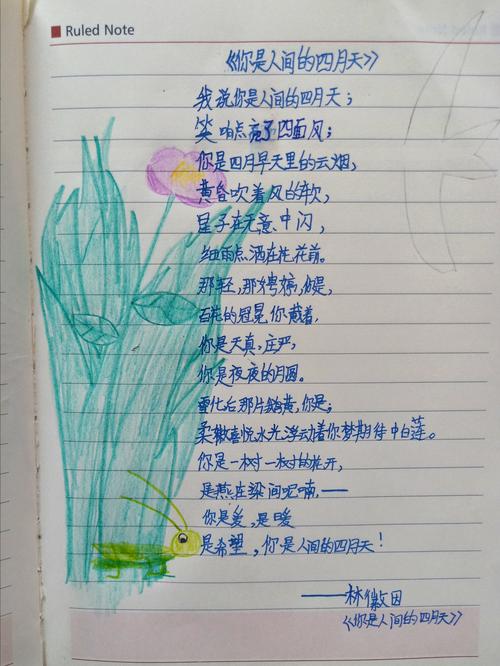 Ruled Note
《你是人间的四月天》
我说你是人间的四月天；
笑响点亮了四面风；
你是四月早天里的云烟，
黄昏吹着风的软，
星子在无意中闪，
细雨点洒在花前。
那轻，那娉婷，你是，
百花的冠冕你戴着，
你是天真，庄严，
你是夜夜的月圆。
雪化后那片鹅黄，你是；
柔嫩喜悦水光浮动着你梦期待中白莲。
你是一树一树的花开，
是燕在梁间呢喃，——
你是爱，是暖
是希望，你是人间的四月天！
——林徽因
《你是人间的四月天》